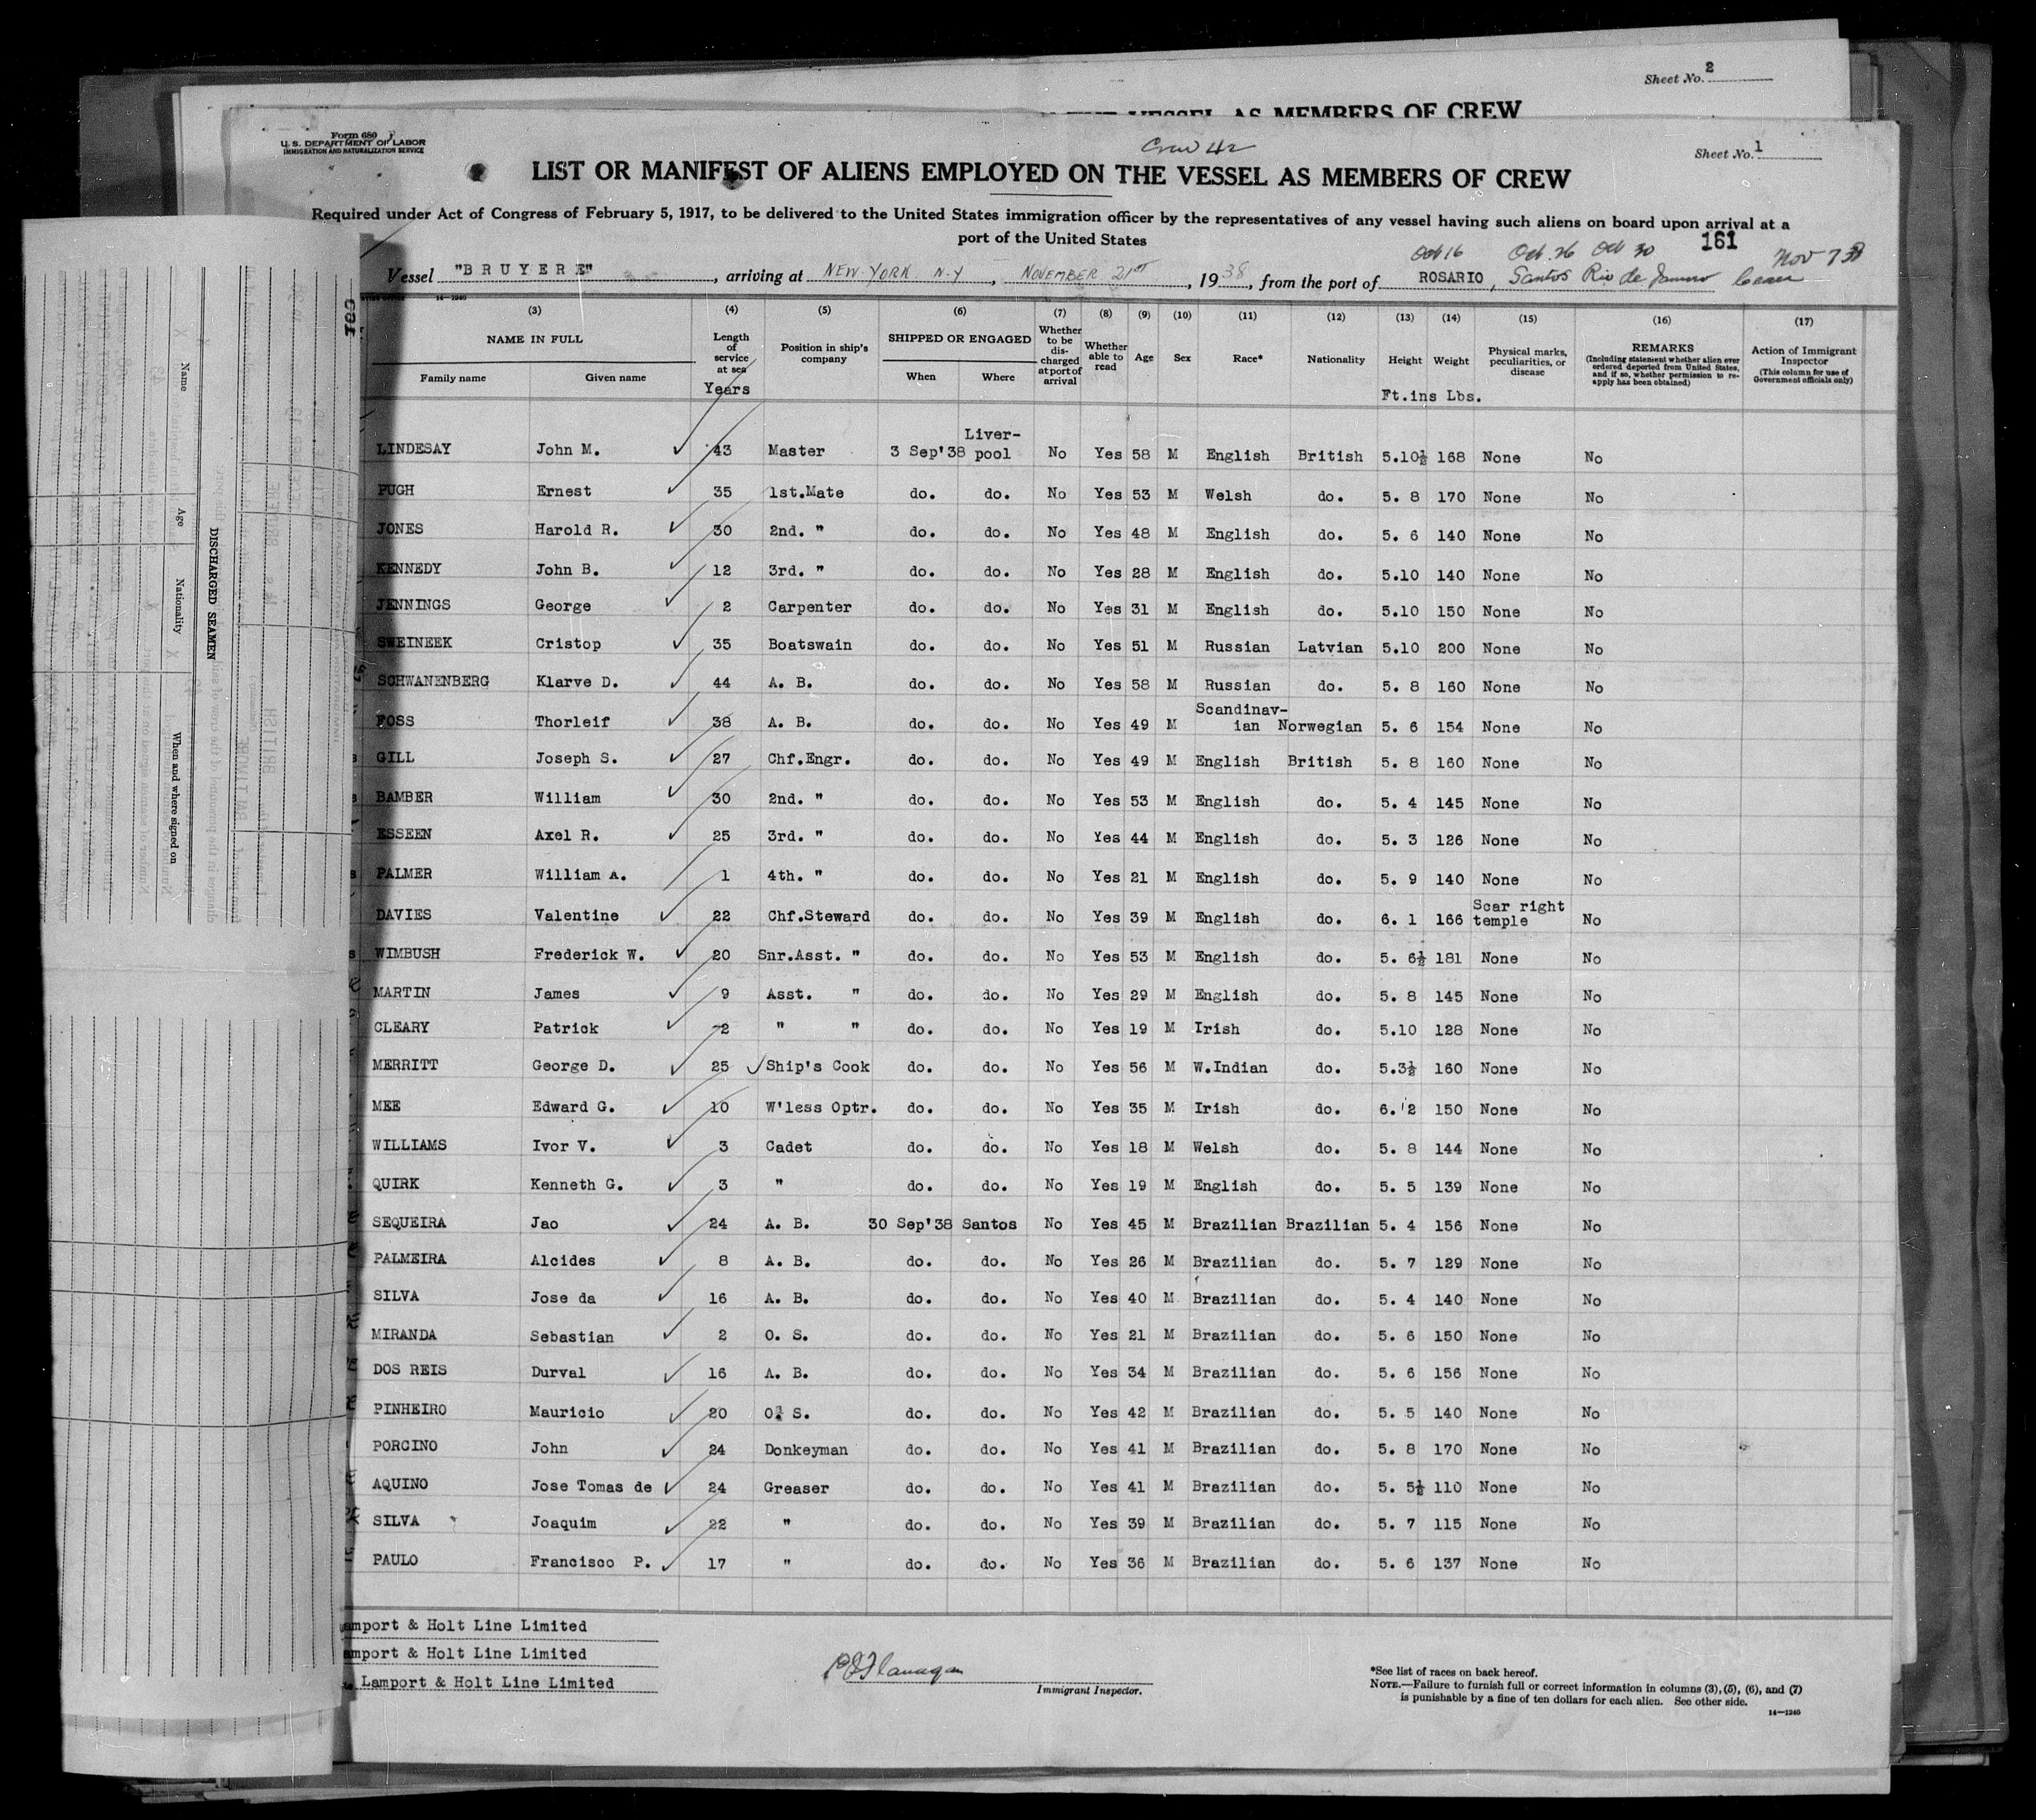 Sheet No. 2
VESSEL AS MEMBERS OF CREW
Form 680
U. S. DEPARTMENT OF LABOR
IMMIGRATION AND NATURALIZATION SERVICE
Crew 42
Sheet No. 1
LIST OR MANIFEST OF ALIENS EMPLOYED ON THE VESSEL AS MEMBERS OF CREW
Required under Act of Congress of February 5, 1917, to be delivered to the United States immigration officer by the representatives of any vessel having such aliens on board upon arrival at a
port of the United States
Oct 16 Oct. 26 Oct 30 161 Nov 7 38
Vessel "BRUYERE", arriving at NEW YORK N.Y, NOVEMBER 21ST, 1938, from the port of ROSARIO, Santos Rio de Janeiro
14—1240
(3) (4) (5) (6) (7) (8) (9) (10) (11) (12) (13) (14) (15) (16) (17)
NAME IN FULL Length of service at sea Position in ship's company SHIPPED OR ENGAGED Whether to be discharged at port of arrival Whether able to read Age Sex Race* Nationality Height Weight Physical marks, peculiarities, or disease REMARKS (Including statement whether alien ever ordered deported from United States, and if so, whether permission to reapply has been obtained) Action of Immigrant Inspector (This column for use of Government officials only)
Family name Given name Years When Where Ft.ins Lbs.
LINDESAY John M. 43 Master 3 Sep'38 Liver-pool No Yes 58 M English British 5.10½ 168 None No
PUGH Ernest 35 1st.Mate do. do. No Yes 53 M Welsh do. 5. 8 170 None No
JONES Harold R. 30 2nd. " do. do. No Yes 48 M English do. 5. 6 140 None No
KENNEDY John B. 12 3rd. " do. do. No Yes 28 M English do. 5.10 140 None No
JENNINGS George 2 Carpenter do. do. No Yes 31 M English do. 5.10 150 None No
SWEINEEK Cristop 35 Boatswain do. do. No Yes 51 M Russian Latvian 5.10 200 None No
SCHWANENBERG Klarve D. 44 A. B. do. do. No Yes 58 M Russian do. 5. 8 160 None No
FOSS Thorleif 38 A. B. do. do. No Yes 49 M Scandinav-ian Norwegian 5. 6 154 None No
GILL Joseph S. 27 Chf.Engr. do. do. No Yes 49 M English British 5. 8 160 None No
BAMBER William 30 2nd. " do. do. No Yes 53 M English do. 5. 4 145 None No
ESSEEN Axel R. 25 3rd. " do. do. No Yes 44 M English do. 5. 3 126 None No
PALMER William A. 1 4th. " do. do. No Yes 21 M English do. 5. 9 140 None No
DAVIES Valentine 22 Chf.Steward do. do. No Yes 39 M English do. 6. 1 166 Scar right temple No
WIMBUSH Frederick W. 20 Snr.Asst. " do. do. No Yes 53 M English do. 5. 6½ 181 None No
MARTIN James 9 Asst. " do. do. No Yes 29 M English do. 5. 8 145 None No
CLEARY Patrick 2 " " do. do. No Yes 19 M Irish do. 5.10 128 None No
MERRITT George D. 25 Ship's Cook do. do. No Yes 56 M W.Indian do. 5.3½ 160 None No
MEE Edward G. 10 W'less Optr. do. do. No Yes 35 M Irish do. 6. 2 150 None No
WILLIAMS Ivor V. 3 Cadet do. do. No Yes 18 M Welsh do. 5. 8 144 None No
QUIRK Kenneth G. 3 " do. do. No Yes 19 M English do. 5. 5 139 None No
SEQUEIRA Jao 24 A. B. 30 Sep'38 Santos No Yes 45 M Brazilian Brazilian 5. 4 156 None No
PALMEIRA Alcides 8 A. B. do. do. No Yes 26 M Brazilian do. 5. 7 129 None No
SILVA Jose da 16 A. B. do. do. No Yes 40 M Brazilian do. 5. 4 140 None No
MIRANDA Sebastian 2 O. S. do. do. No Yes 21 M Brazilian do. 5. 6 150 None No
DOS REIS Durval 16 A. B. do. do. No Yes 34 M Brazilian do. 5. 6 156 None No
PINHEIRO Mauricio 20 O. S. do. do. No Yes 42 M Brazilian do. 5. 5 140 None No
PORCINO John 24 Donkeyman do. do. No Yes 41 M Brazilian do. 5. 8 170 None No
AQUINO Jose Tomas de 24 Greaser do. do. No Yes 41 M Brazilian do. 5. 5½ 110 None No
SILVA Joaquim 22 " do. do. No Yes 39 M Brazilian do. 5. 7 115 None No
PAULO Francisco P. 17 " do. do. No Yes 36 M Brazilian do. 5. 6 137 None No
amport & Holt Line Limited
amport & Holt Line Limited
Lamport & Holt Line Limited
P J Flanagan
Immigrant Inspector.
*See list of races on back hereof.
NOTE.—Failure to furnish full or correct information in columns (3), (5), (6), and (7)
is punishable by a fine of ten dollars for each alien. See other side.
14—1240
DISCHARGED SEAMEN
Name Age Nationality When and where signed on